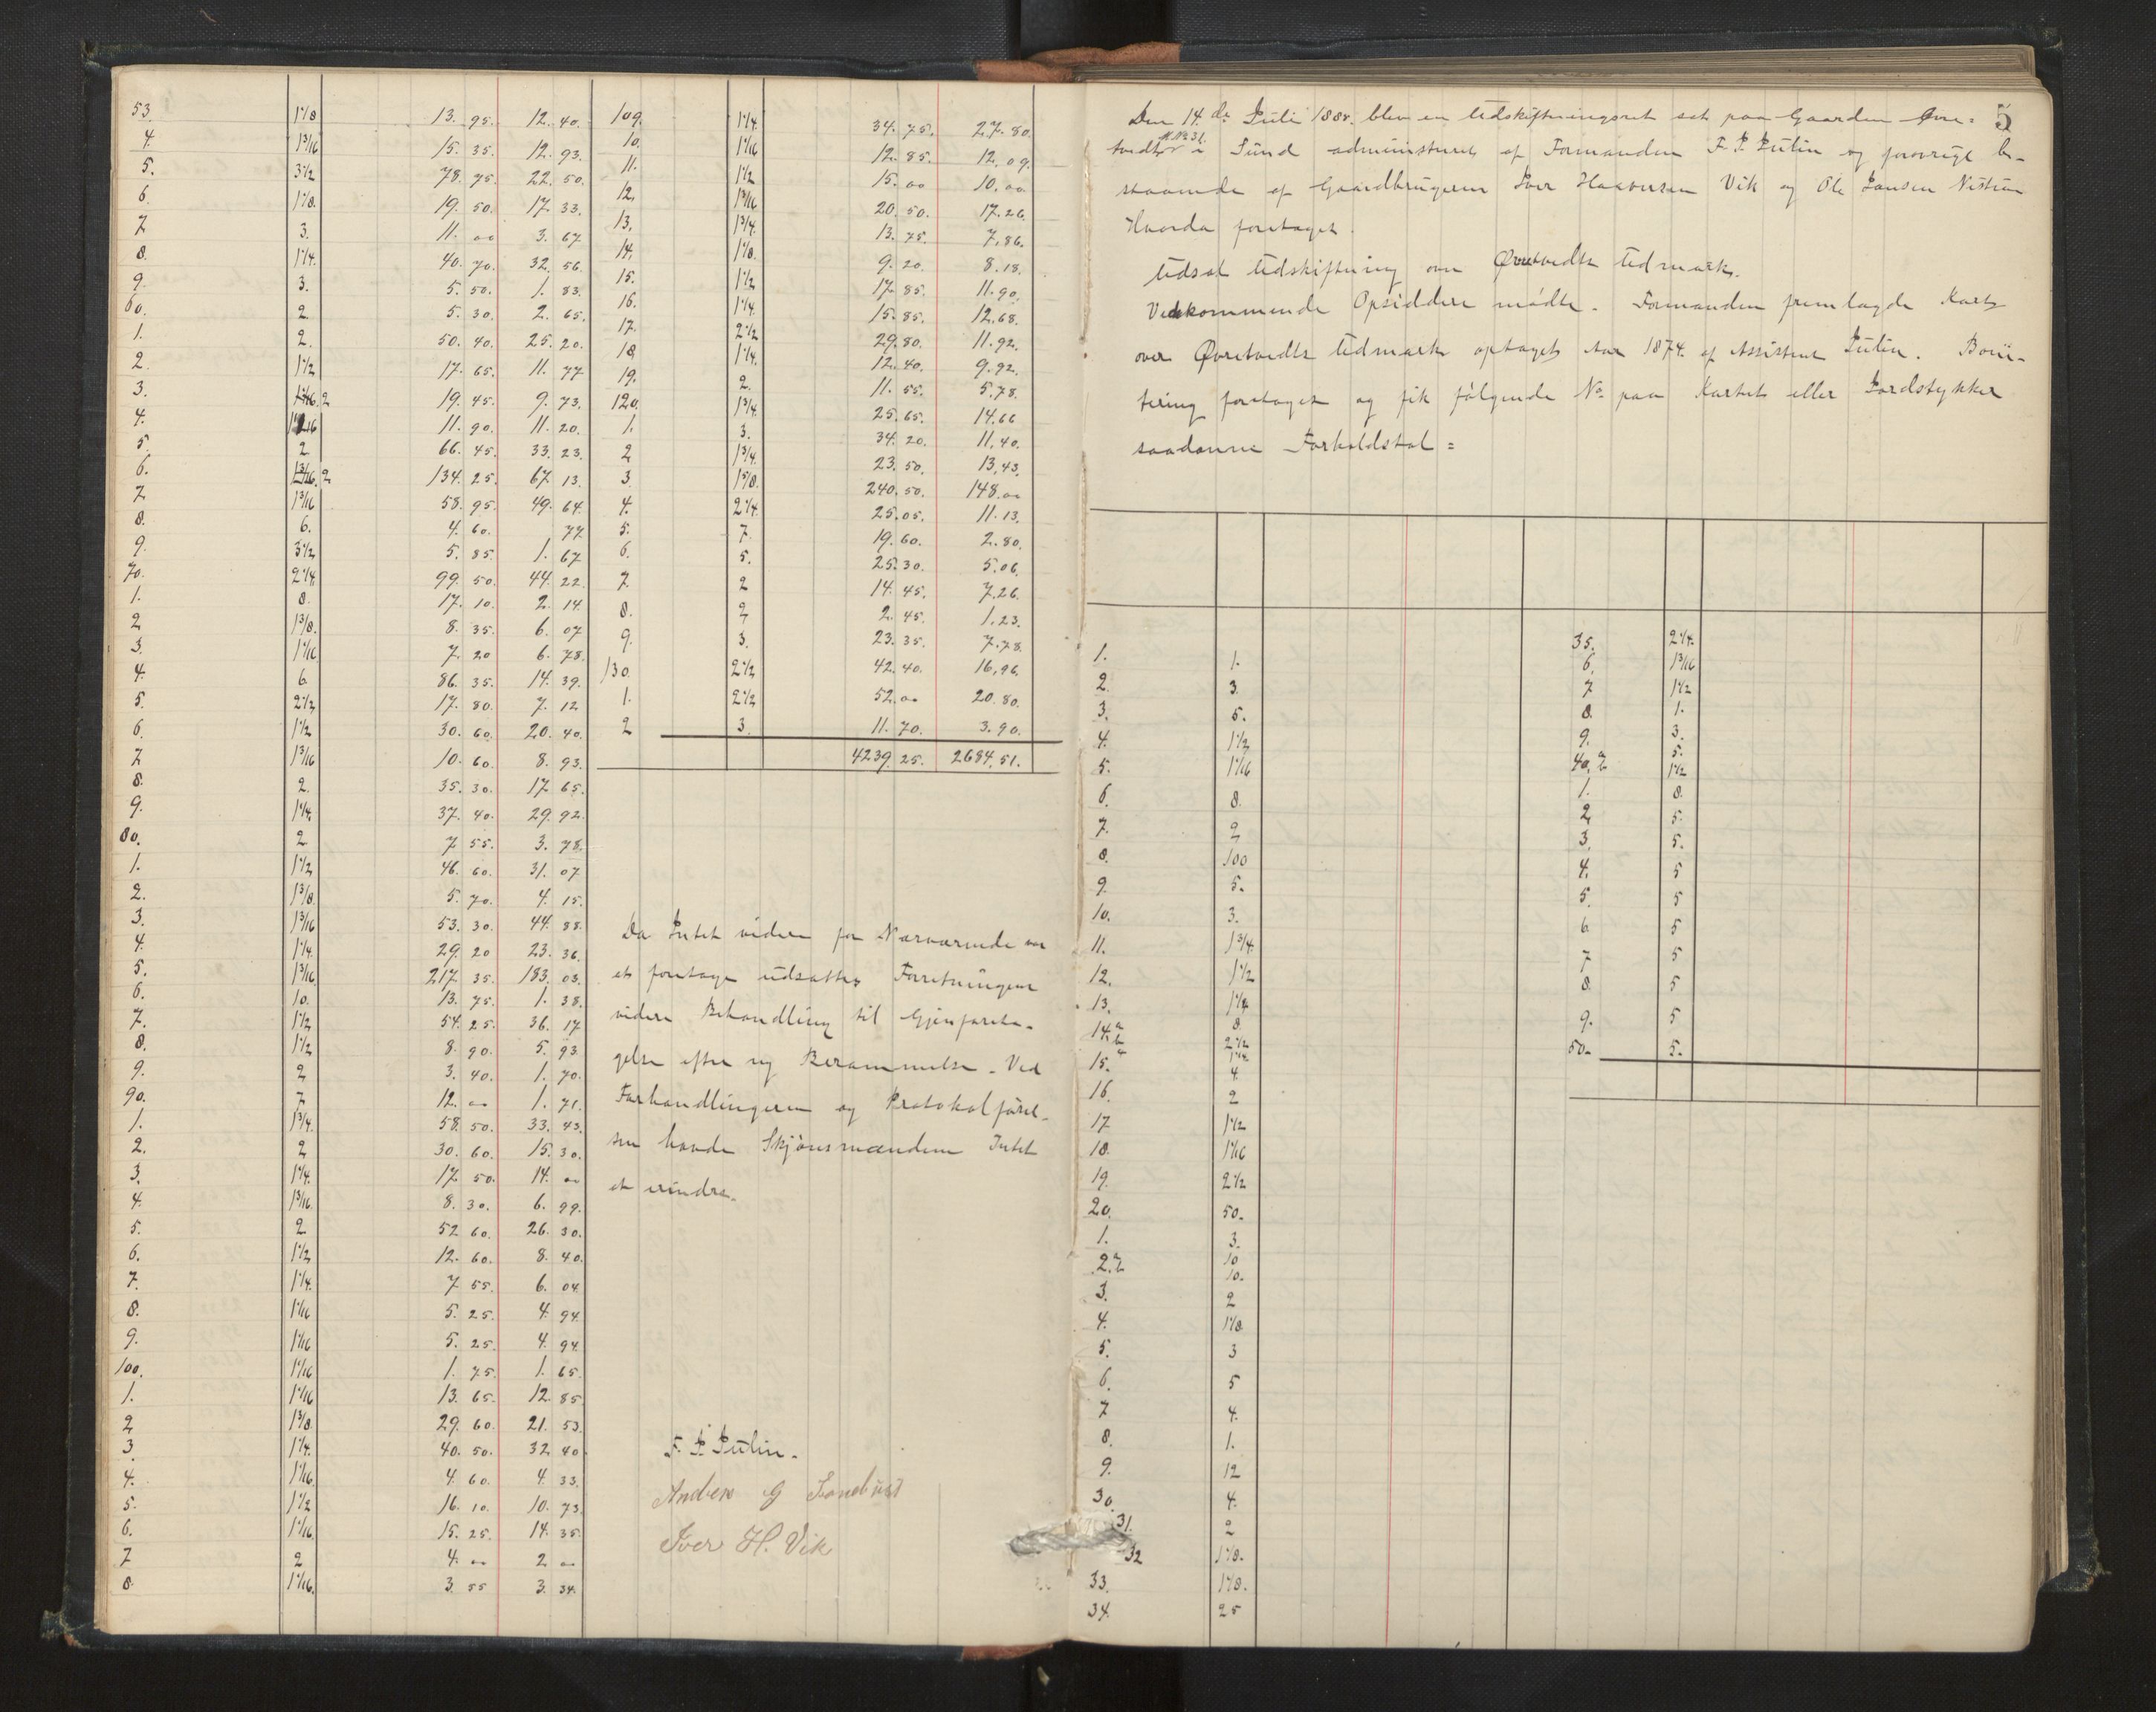 53. 1 1/8 13. 95. 12. 40.
4. 1 3/16 15. 35. 12. 93.
5. 3 1/2 78. 75. 22. 50.
6. 1 1/8. 19. 50. 17. 33.
7. 3. 11. 00 3. 67
8. 1 1/4. 40. 70. 32. 56.
9. 3. 5. 50. 1. 83.
60. 2. 5. 30. 2. 65.
1. 2. 50. 40. 25. 20.
2. 1 1/2 17. 65. 11. 77
3. 2 19. 45. 9. 73.
4. 1 1/16 11. 90. 11. 20.
5. 2 66. 45. 33. 23.
6. 2 134. 25. 67 13.
7. 1 3/16 58. 95. 49. 64.
8. 6. 4. 60. 77.
9. 3 1/2 5. 85. 1. 67
70. 2 1/4. 99. 50. 44. 22.
1. 8. 17. 10. 2. 14.
2 1 3/8. 8. 35. 6. 07
3. 1 1/16 7. 20 6. 78.
4. 6. 86. 35. 14. 39.
5. 2 1/2 17. 80. 7. 12
6. 1 1/2 30. 60. 20. 40.
7 1 3/16 10. 60. 8. 93.
8. 2. 35. 30. 17 65.
9. 1 1/4. 37. 40. 29. 92.
80. 2 7 55. 3. 78.
1. 1 1/2 46. 60. 31. 07
2. 1 3/8. 5. 70. 4. 15.
3. 1 3/16 53. 30. 44. 88.
4. 1 1/4. 29. 20 23. 36.
5. 1 3/16 217. 35. 183. 03.
6. 10. 13. 75. 1. 38.
7. 1 1/2 54. 25. 36. 17
8. 1 1/2 8. 90. 5. 93
9. 2 3. 40. 1. 70.
90. 7 12. 00 1. 71.
1. 1 3/4. 58. 50. 33. 43.
2. 2 30. 60. 15. 30.
3 1 1/4. 17 50. 14. 00
4. 1 3/16. 8. 30. 6. 99.
5. 2 52 60. 26. 30.
6. 1 1/2 12. 60. 8. 40.
7. 1 1/4. 7 55. 6. 04
8. 1 1/16 5. 25. 4. 94
9. 1 1/16 5. 25. 4. 94
100. 1 1/16 1. 75. 1. 65.
1. 1 1/16 13. 65. 12. 85
2 1 3/8. 29. 60. 21. 53.
3. 1 1/4. 40. 50. 32 40
4. 1 1/16. 4. 60. 4. 33.
5. 1 1/2 16. 10. 10. 73.
6. 1 1/16. 15. 25. 14. 35.
7 2 4. 00 2 00
8. 1 1/16. 3. 55 3. 34.
109. 1 1/4. 34. 75. 27. 80.
10. 1 1/16 12. 85. 12, 09.
11. 1 1/2 15. 00 10, 00
12, 1 3/16 20. 50. 17. 26.
13, 1 3/4. 13. 75. 7, 86.
14, 1 1/8. 9. 20. 8. 18.
15. 1 1/2 17. 85. 11. 90.
16. 1 1/4. 15. 85. 12. 68.
17. 2 1/2 29. 80. 11. 92.
18, 1 1/4. 12. 40. 9. 92.
19. 2. 11. 55. 5. 78.
120. 1 3/4 25. 65. 14. 66
1. 3. 34. 20. 11, 40.
2 1 3/4. 23. 50. 13, 43.
3. 1 5/8. 240. 50. 148. 00
4. 2 1/4. 25. 05. 11. 13.
5. 7. 19. 60. 2. 80.
6. 5. 25. 30. 5. 06.
7 2 14. 45. 7. 26.
8. 2 2. 45. 1. 23.
9. 3. 23. 35. 7. 78.
130. 2 1/2 42. 40. 16, 96.
1. 2 1/2 52. 00 20. 80.
2 3. 11. 70. 3. 90.
4239. 25. 2684, 51.
Da Intet videre for Nærværende var
at foretage udsattes Forretningens
videre Behandling til Gjenforeta-
gelse efter ny Berammelse. Ved
Forhandlingerne og Protokolførel-
sen havde Skjönsmændene Intet
at erindre.
F. J. Julin.
Anders G
Iver H. Vik
5
Den 14. de Juli 1888. blev en Udskiftningsret sat paa Gaarden Øvre-
M. No 31.
tvedt i Sund administreret af Formanden F. J. Julin og forøvrigt be-
staaende af Gaardbrugerne Iver Haaversen Vik og Ole Jansen
foretaget.
Udsat Udskiftning over Øvretvedts Udmark.
Vedkommende Opsiddere mødte. Formanden fremlagde Kart
over Øvretvedts Udmark optaget Aar 1874. af Assistent Julin. Boni-
tering foretaget og fik følgende No paa Kartet eller Jordstykker
saadanne Forholdstal =
1. 1.
2. 3.
3. 5.
4. 1 1/2
5. 1 1/16
6. 8.
7. 2
8. 100
9. 5.
10. 3.
11. 1 3/4.
12. 1 1/2
13. 1 1/4
14. a 8.
b 2 1/2
15. 4
16. 2
17 1 1/2
18. 1 1/16
19. 2 1/2
20. 50.
1. 3.
2. a 10
b 10.
3. 2
4. 1 1/8
5. 3
6. 5
7 4.
8. 1.
9. 12
30. 4.
31. 2
32 1 1/8.
33. 1 1/8.
34. 25
35. 2 1/4.
6. 1 3/16
7 1 1/2
8. 1.
9. 3.
40. a 5.
b 1 1/2
1. 8.
2, 5.
3. 5.
4. 5
5. 5
6. 5
7 5
8. 5
9. 5
50. 5.